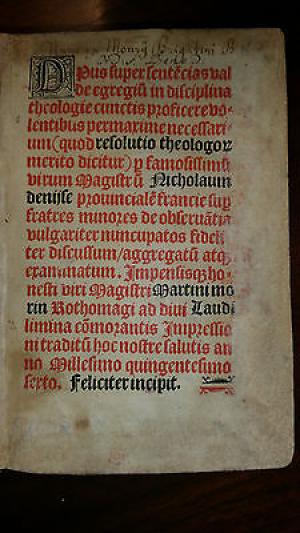 Opus super sentẽcias val
de egregiũ in disciplina
theologie cunctis proficere vo⸗
lentibus permaxime necessari⸗
um (quod resolutio theologoꝝ
merito dicitur) ꝑ famosissimũ
virum Magistrũ Nicholaum
denijse prouincialẽ francie sup
fratres minores de obseruãtia
vulgariter nuncupatos fideli
ter discussum/aggregatũ atqꝫ
examinatum. Impensisqꝫ ho⸗
nesti viri Magistri Martini mo
rin Rothomagi ad diui Laudi
limina cõmorantis Impressio
ni traditũ hoc nostre salutis an
no Millesimo quingentesimo
sexto. Feliciter incipit.